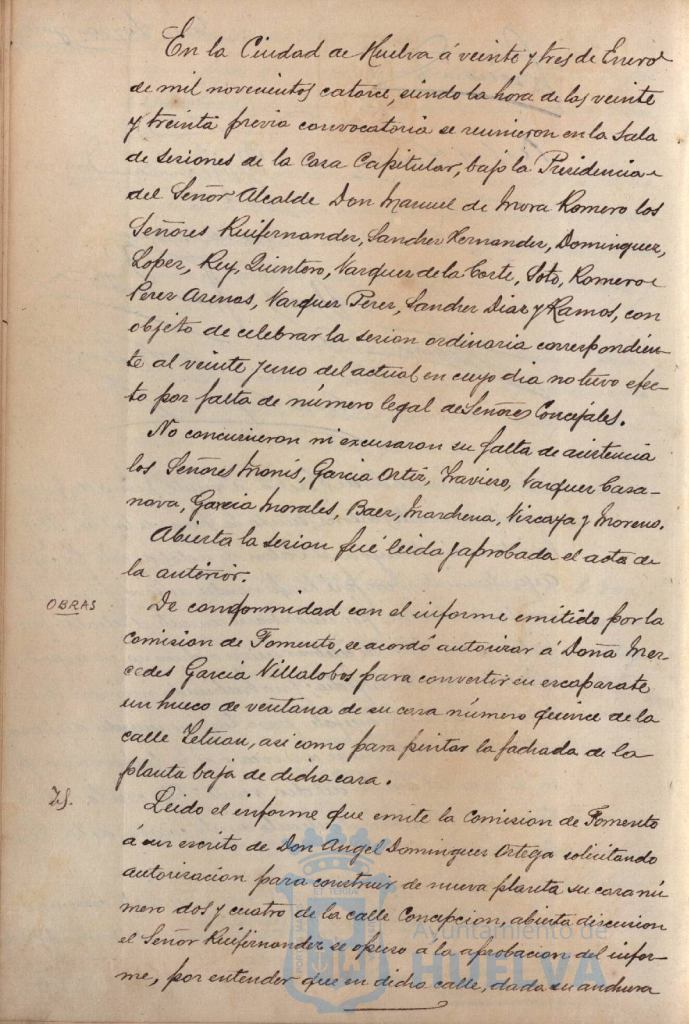 En la Ciudad de Huelva á veinte y tres de Enero
de mil novecientos catorce, siendo la hora de las veinte
y treinta previa convocatoria se reunieron en la Sala
de sesiones de la Casa Capitular, bajo la Presidencia
del Señor Alcalde Don Manuel de Mora Romero los
Señores Ruifernandez, Sanchez Hernandez, Dominguez,
Lopez, Rey, Quintero, Vazquez de la Corte, Soto, Romero
Perez Arenas, Vazquez Perez, Sanchez Diaz y Ramos, con
objeto de celebrar la sesion ordinaria correspondien-
te al veinte y uno del actual en cuyo dia no tuvo efec-
to por falta de número legal de Señores Concejales.
No concurrieron ni excusaron su falta de asistencia
los Señores Monís, Garcia Ortiz, Traviero, Vazquez Casa-
nova, Garcia Morales, Baez, Marchena, Viscaya y Moreno.
Abierta la sesion fué leida y aprobada el acta de
la anterior.
OBRAS
De conformidad con el informe emitido por la
Comision de Fomento, se acordó autorizar á Doña Mer-
cedes Garcia Villalobos para convertir en escaparate
un hueco de ventana de su casa número quince de la
calle Tetuan, asi como para pintar la fachada de la
planta baja de dicha casa.
Leido el informe que emite la Comision de Fomento
á un escrito de Don Angel Dominguez Ortega solicitando
autorizacion para construir de nueva planta su casa nú-
mero dos y cuatro de la calle Concepcion, abierta discusion
el Señor Ruifernandez se opuso á la aprobacion del infor-
me, por entender que en dicha calle, dada su anchura
Ayuntamiento de
HUELVA